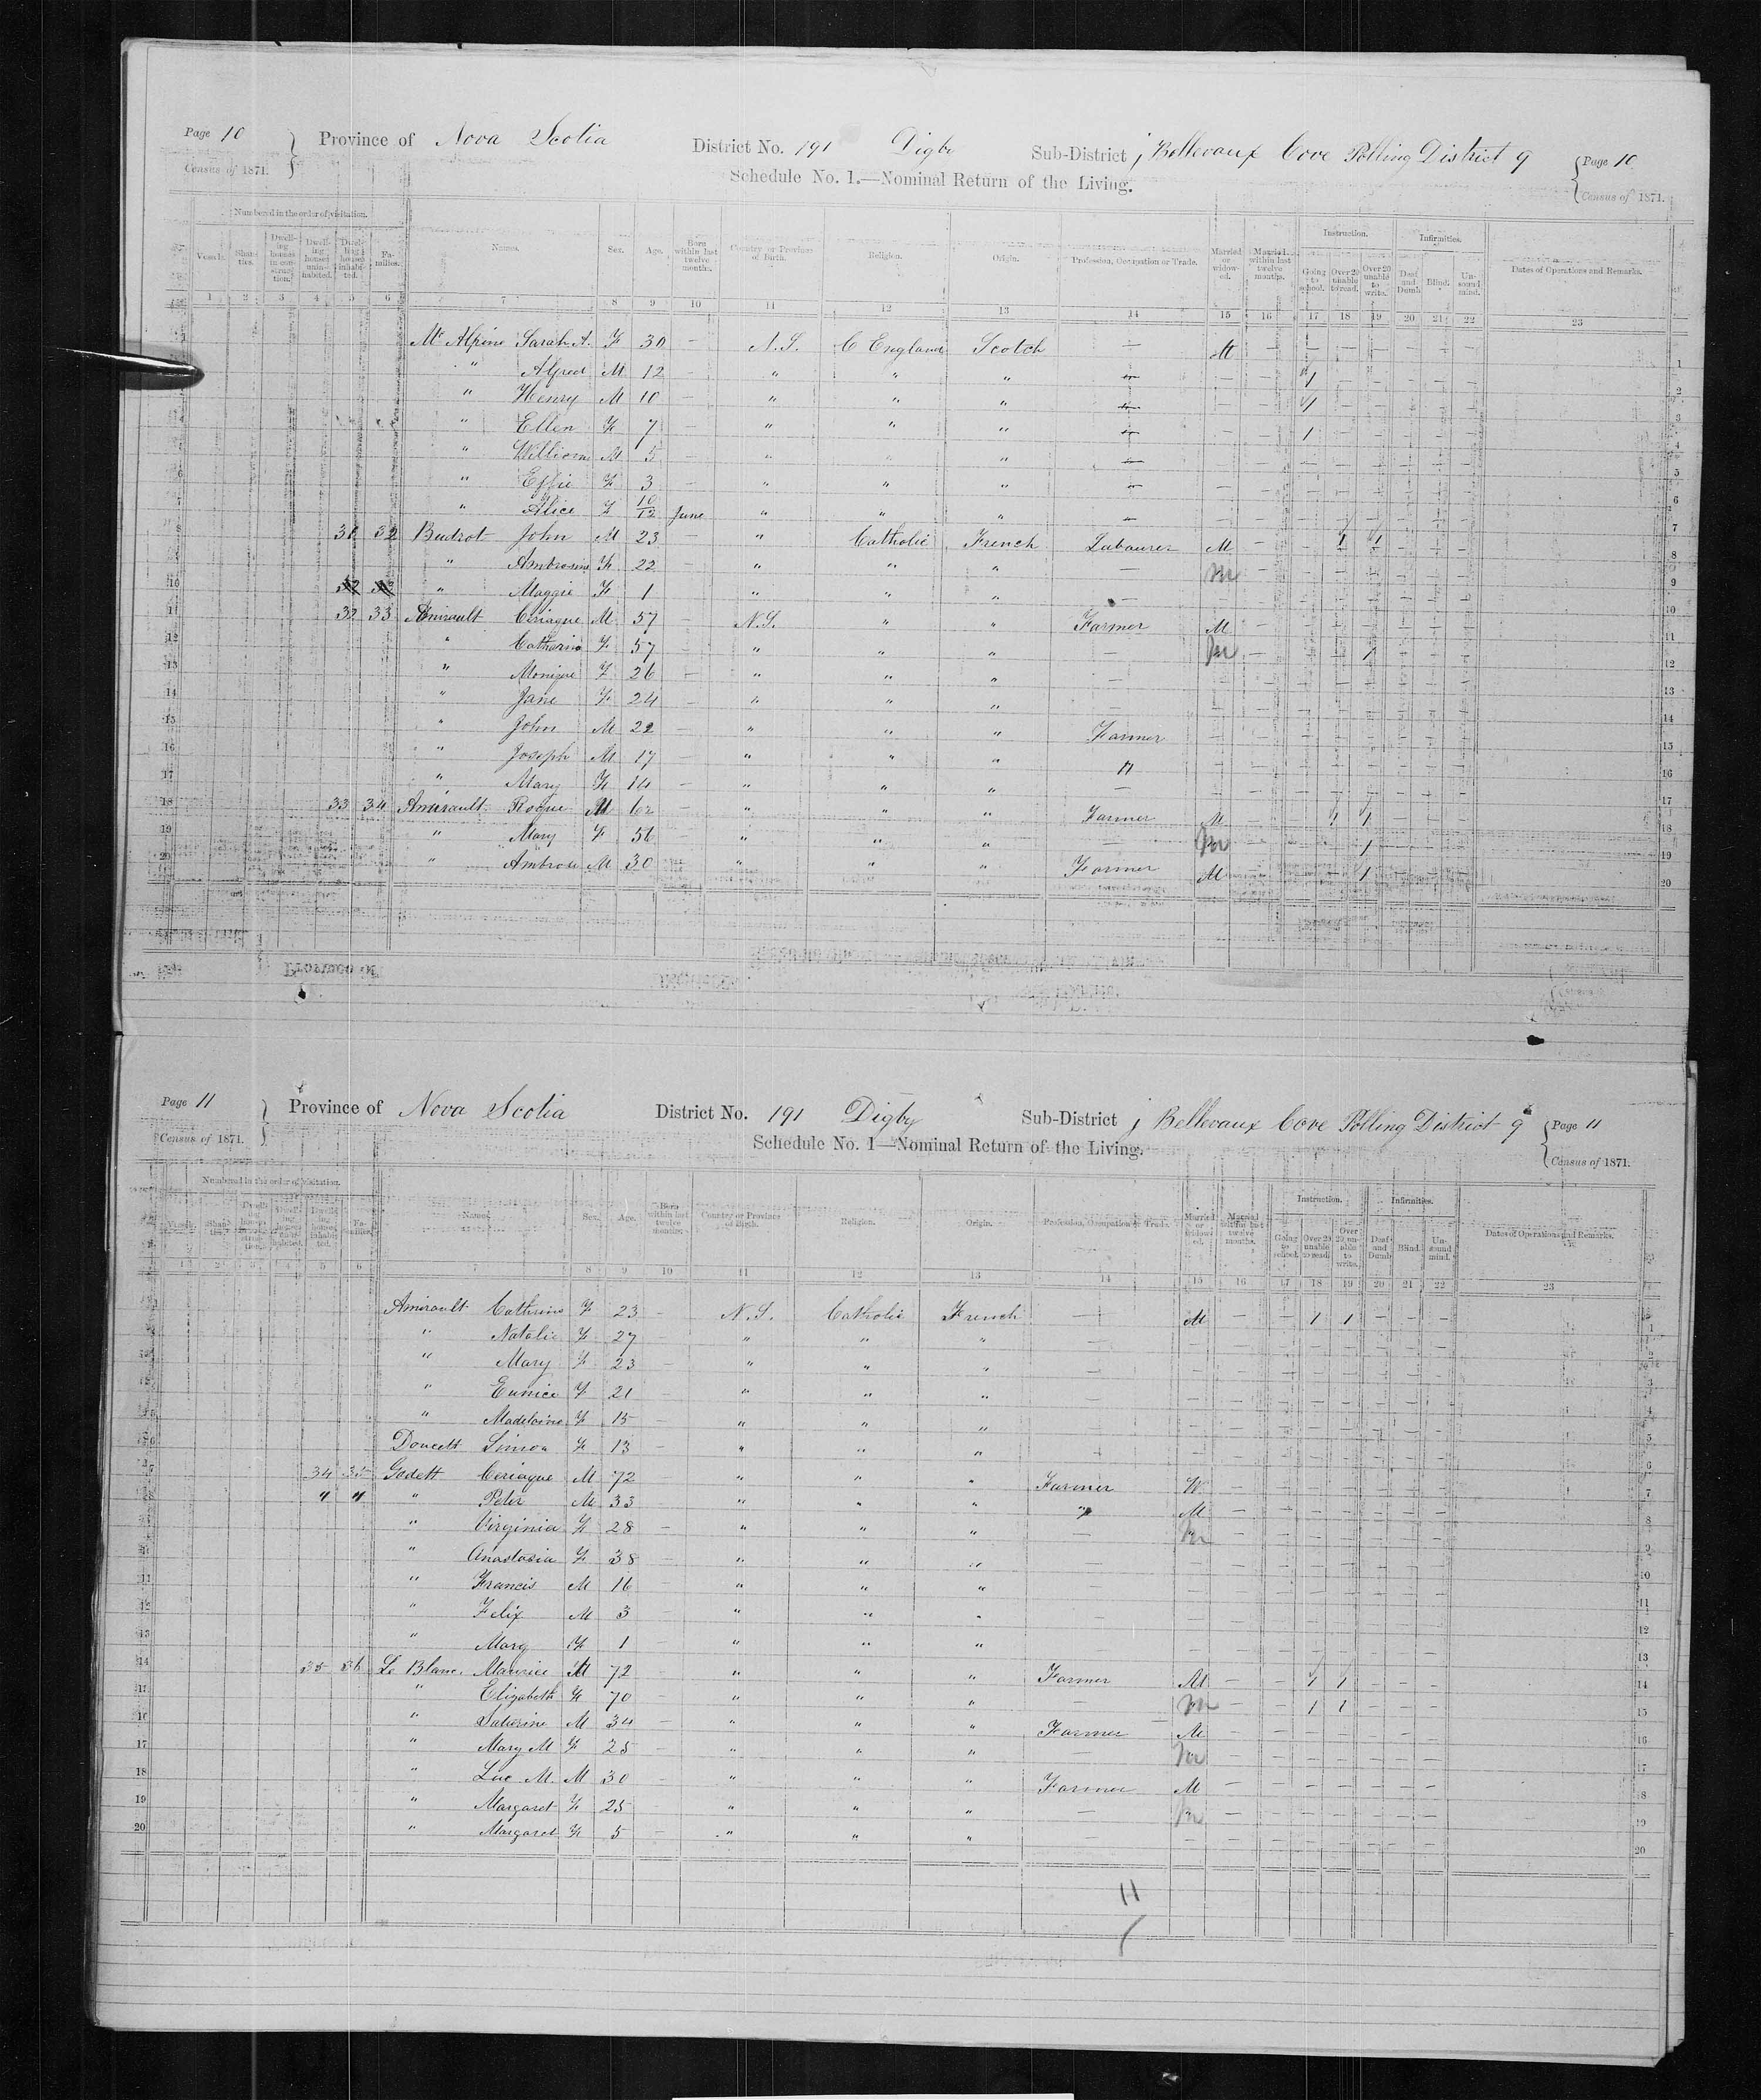 Page 10 Province of Nova Scotia District No. 191 Digby Sub-District j Bellevaux Cove Polling District 9 Page 10
Census of 1871. Schedule No. 1.—Nominal Return of the Living. Census of 1871.
Numbered in the order of visitation. Instruction. Infirmities.
Vessels. Shanties. Dwelling houses in construction. Dwelling houses uninhabited. Dwelling houses inhabited. Families. Names. Sex. Age. Born within last twelve months. Country or Province of Birth. Religion. Origin. Profession, Occupation or Trade. Married or widowed. Married within last twelve months. Going to school. Over 20 unable to read. Over 20 unable to write. Deaf and Dumb. Blind. Unsound mind. Dates of Operations and Remarks.
1 2 3 4 5 6 7 8 9 10 11 12 13 14 15 16 17 18 19 20 21 22 23
Mc Alpine Sarah A. F 30 — N.S. C England Scotch — M — — — — — — — 1
" Alfred M 12 — " " " — — — 1 — — — — — 2
" Henry M 10 — " " " — — — 1 — — — — — 3
" Ellen F 7 — " " " — — — 1 — — — — — 4
" William M 5 — " " " — — — — — — — — — 5
6 " Effie F 3 — " " " — — — — — — — — — 6
7 " Alice F 10/12 June " " " — — — — — — — — — 7
8 31 32 Budrot John M 23 — " Catholic French Labourer M — — 1 1 — — — 8
" Ambrosine F 22 — " " " — M — — — — — — — 9
10 " Maggie F 1 — " " " — — — — — — — — — 10
11 32 33 Amirault Ceriaque M 57 — N.S. " " Farmer M — — — — — — — 11
12 " Catherine F 57 — " " " — M — — — 1 — — — 12
13 " Monique F 26 — " " " — — — — — — — — — 13
14 " Jane F 24 — " " " — — — — — — — — — 14
15 " John M 22 — " " " Farmer — — — — — — — — 15
16 " Joseph M 17 — " " " " — — — — — — — — 16
17 " Mary F 14 — " " " — — — — — — — — — 17
18 33 34 Amirault Roque M 62 — " " " Farmer M — — 1 1 — — — 18
19 " Mary F 56 — " " " — M — — — 1 — — — 19
20 " Ambrose M 30 " " " Farmer M — — — 1 — — — 20
Page 11 Province of Nova Scotia District No. 191 Digby Sub-District j Bellevaux Cove Polling District 9 Page 11
Census of 1871. Schedule No. 1—Nominal Return of the Living. Census of 1871.
Numbered in the order of visitation. Instruction. Infirmities.
Vessels. Shanties. Dwelling houses in construction. Dwelling houses uninhabited. Dwelling houses inhabited. Families. Names. Sex. Age. Born within last twelve months. Country or Province of Birth. Religion. Origin. Profession, Occupation or Trade. Married or widowed. Married within last twelve months. Going to school. Over 20 unable to read. Over 20 unable to write. Deaf and Dumb. Blind. Unsound mind. Dates of Operations and Remarks.
1 2 3 4 5 6 7 8 9 10 11 12 13 14 15 16 17 18 19 20 21 22 23
Amirault Cathrine F 23 — N.S. Catholic French — M — — 1 1 — — — 1
" Natalie F 27 — " " " — — — — — — — — — 2
" Mary F 23 — " " " — — — — — — — — — 3
" Eunice F 21 — " " " — — — — — — — — — 4
" Madeleine F 15 — " " " — — — — — — — — — 5
Doucett Simon F 13 — " " " — — — — — — — — — 6
7 34 35 Godett Ceriaque M 72 — " " " Farmer W — — — — — — — 7
8 " " " Peter M 33 — " " " " M — — — — — — — 8
" Virginia F 28 — " " " — M — — — — — — — 9
10 " Anastasia F 38 — " " " — — — — — — — — — 10
11 " Francis M 16 — " " " — — — — — — — — — 11
12 " Felix M 3 — " " " — — — — — — — — — 12
13 " Mary F 1 — " " " — — — — — — — — — 13
14 35 36 Le Blanc Maurice M 72 — " " " Farmer M — — 1 1 — — — 14
15 " Elizabeth F 70 — " " " — M — — 1 1 — — — 15
16 " M 34 — " " " Farmer M — — — — — — — 16
17 " Mary M F 25 — " " " — M — — — — — — — 17
18 " Luc M. M 30 — " " " Farmer M — — — — — — — 18
19 " Margaret F 25 — " " " — M — — — — — — — 19
20 " Margaret F 5 — " " " — — — — — — — — — 20
11